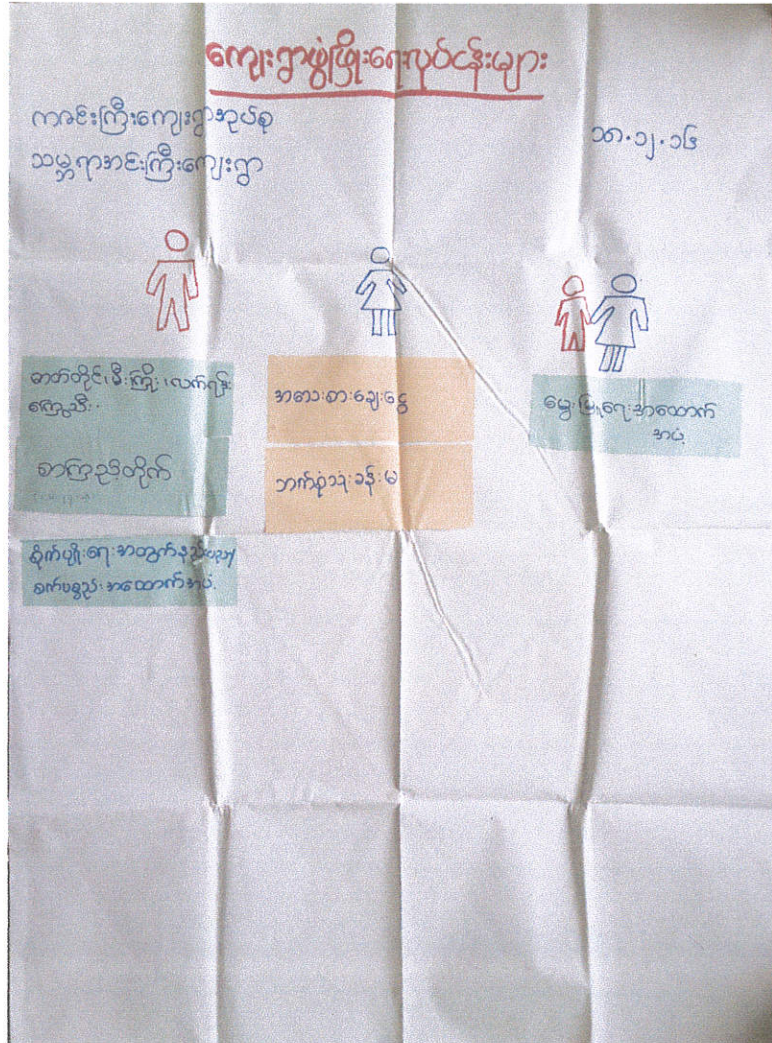 ကျေးရွာဖွံ့ဖြိုးရေးလုပ်ငန်းများ
ကဇင်းကြီးကျေးရွာအုပ်စု
သမ္ဘရာအင်းကြီးကျေးရွာ
၁၈.၁၂.၁၆
ဓာတ်တိုင်၊ မီးကြိုး၊ လက်ရန်း
ကြေးသီး
စာကြည့်တိုက်
စိုက်ပျိုးရေးအတွက်နည်းပညာ
စက်ပစ္စည်းအထောက်အပံ့
အသေးစားချေးငွေ
ဘက်စုံသုံးခန်းမ
မွေးမြူရေးအထောက်
အပံ့